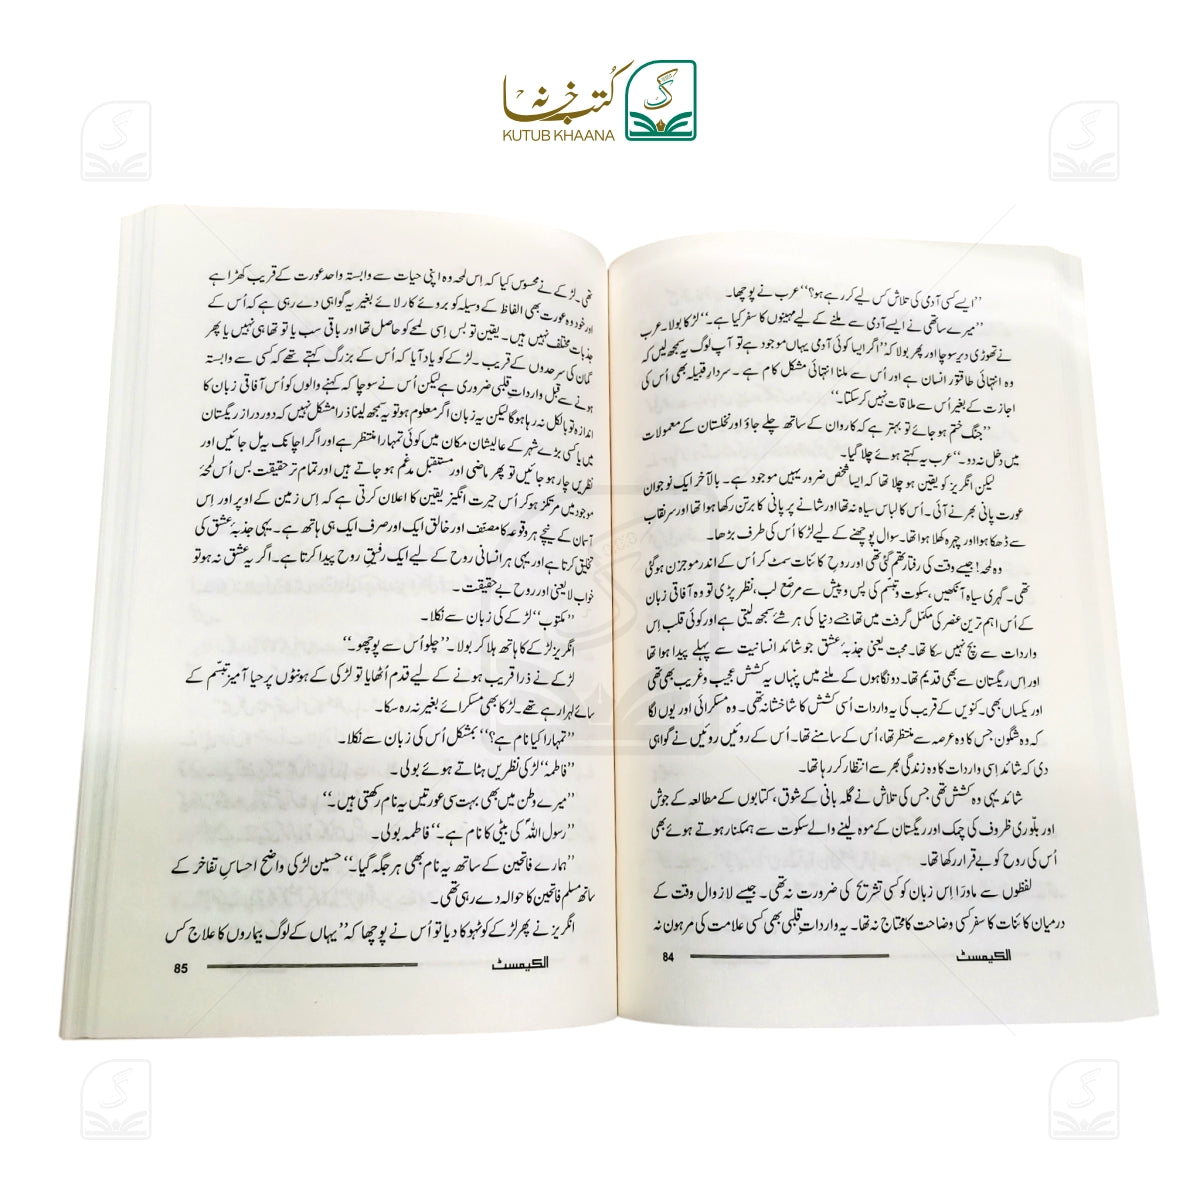 کتب خانہ
KUTUB KHAANA
"ایسے کسی آدمی کی تلاش کس لیے کر رہے ہو؟" عرب نے پوچھا۔
"میرے ساتھی نے ایسے آدمی سے ملنے کے لیے مہینوں کا سفر کیا ہے۔" لڑکا بولا۔ عرب
نے تھوڑی دیر سوچا اور پھر بولا کہ "اگر ایسا کوئی آدمی یہاں موجود ہے تو آپ لوگ یہ سمجھ لیں کہ
وہ انتہائی طاقتور انسان ہے اور اُس سے ملنا انتہائی مشکل کام ہے۔ سردارِ قبیلہ بھی اُس کی
اجازت کے بغیر اُس سے ملاقات نہیں کر سکتا۔"
"جنگ ختم ہو جائے تو بہتر ہے کہ کارواں کے ساتھ چلے جاؤ اور نخلستان کے معمولات
میں دخل نہ دو۔" عرب یہ کہتے ہوئے چلا گیا۔
لیکن انگریز کو یقین ہو چلا تھا کہ ایسا شخص ضرور یہیں موجود ہے۔ بالآخر ایک نوجوان
عورت پانی بھرنے آئی۔ اُس کا لباس سیاہ نہ تھا اور شانے پر پانی کا برتن رکھا ہوا تھا اور سر نقاب
سے ڈھکا ہوا اور چہرہ کھلا ہوا تھا۔ سوال پوچھنے کے لیے لڑکا اُس کی طرف بڑھا۔
وہ لمحہ! جیسے وقت کی رفتار تھم گئی تھی اور روحِ کائنات سمٹ کر اُس کے اندر موجزن ہو گئی
تھی۔ گہری سیاہ آنکھیں، سکوت و تبسّم کی پس و پیش سے مرصّع لب، نظر پڑی تو وہ آفاقی زبان
کے اُس اہم ترین عنصر کی مکمل گرفت میں تھا جسے دنیا کی ہر شئے سمجھ لیتی ہے اور کوئی قلب اِس
واردات سے بچ نہیں سکا تھا۔ محبت یعنی جذبۂ عشق جو شائد انسانیت سے پہلے پیدا ہوا تھا
اور اِس ریگستان سے بھی قدیم تھا۔ دو نگاہوں کے ملنے میں پنہاں یہ کشش عجیب و غریب بھی تھی
اور یکساں بھی۔ کنویں کے قریب کی یہ واردات اُسی کشش کا شاخسانہ تھی۔ وہ مسکرائی اور یوں لگا
کہ وہ شگون جس کا وہ عرصہ سے منتظر تھا، اُس کے سامنے تھا۔ اُس کے روئیں روئیں نے گواہی
دی کہ شائد اِسی واردات کا وہ زندگی بھر سے انتظار کر رہا تھا۔
شائد یہی وہ کشش تھی، جس کی تلاش نے گلہ بانی کے شوق، کتابوں کے مطالعہ کے جوش
اور بلّوری ظروف کی چمک اور ریگستان کے موہ لینے والے سکوت سے ہمکنار ہوتے ہوئے بھی
اُس کی روح کو بے قرار رکھا تھا۔
لفظوں سے ماورا اِس زبان کو کسی تشریح کی ضرورت نہ تھی۔ جیسے لازوال وقت کے
درمیان کائنات کا سفر کسی وضاحت کا محتاج نہ تھا۔ یہ وارداتِ قلبی بھی کسی علامت کی مرہون نہ
الکیمسٹ
84
تھی۔ لڑکے نے محسوس کیا کہ اِس لمحہ وہ اپنی حیات سے وابستہ واحد عورت کے قریب کھڑا ہے
اور خود وہ عورت بھی الفاظ کے وسیلہ کو بروئے کار لائے بغیر یہ گواہی دے رہی ہے کہ اُس کے
جذبات مختلف نہیں ہیں۔ یقین تو بس اِسی لمحے کو حاصل تھا اور باقی سب یا تو تھا ہی نہیں یا پھر
گمان کی سرحدوں کے قریب۔ لڑکے کو یاد آیا کہ اُس کے بزرگ کہتے تھے کہ کسی سے وابستہ
ہونے سے قبل وارداتِ قلبی ضروری ہے لیکن اُس نے سوچا کہ کہنے والوں کو اُس آفاقی زبان کا
اندازہ تو بالکل نہ رہا ہوگا لیکن یہ زبان اگر معلوم ہو تو یہ سمجھ لینا ذرا مشکل نہیں کہ دور دراز ریگستان
میں یا کسی بڑے شہر کے عالیشان مکان میں کوئی تمہارا منتظر ہے اور اگر اچانک یہ مل جائیں اور
نظریں چار ہو جائیں تو پھر ماضی اور مستقبل مدغم ہو جاتے ہیں اور تمام تر حقیقت بس اُس لمحۂ
موجود میں مرتکز ہو کر اُس حیرت انگیز یقین کا اعلان کرتی ہے کہ اِس زمین کے اوپر اور اِس
آسمان کے نیچے ہر وقوعہ کا مصنف اور خالق ایک اور صرف ایک ہی ہاتھ ہے۔ یہی جذبۂ عشق کی
تخلیق کرتا ہے اور یہی ہر انسانی روح کے لیے ایک رفیقِ روح پیدا کرتا ہے۔ اگر یہ عشق نہ ہو تو
خواب لایعنی اور روح بے حقیقت۔
"مکتوب" لڑکے کی زبان سے نکلا۔
انگریز لڑکے کا ہاتھ ہلا کر بولا۔ "چلو اُس سے پوچھو۔"
لڑکے نے ذرا قریب ہونے کے لیے قدم اُٹھایا تو لڑکی کے ہونٹوں پر حیا آمیز تبسّم کے
سائے لہرا رہے تھے۔ لڑکا بھی مسکرائے بغیر نہ رہ سکا۔
"تمہارا کیا نام ہے؟" بمشکل اُس کی زبان سے نکلا۔
"فاطمہ" لڑکی نظریں ہٹاتے ہوئے بولی۔
"میرے وطن میں بھی بہت سی عورتیں یہ نام رکھتی ہیں۔"
"رسول اللہؐ کی بیٹی کا نام ہے۔" فاطمہ بولی۔
"ہمارے فاتحین کے ساتھ یہ نام بھی ہر جگہ گیا۔" حسین لڑکی واضح احساسِ تفاخر کے
ساتھ مسلم فاتحین کا حوالہ دے رہی تھی۔
انگریز نے پھر لڑکے کو ٹہوکا دیا تو اُس نے پوچھا کہ "یہاں کے لوگ بیماروں کا علاج کس
الکیمسٹ
85